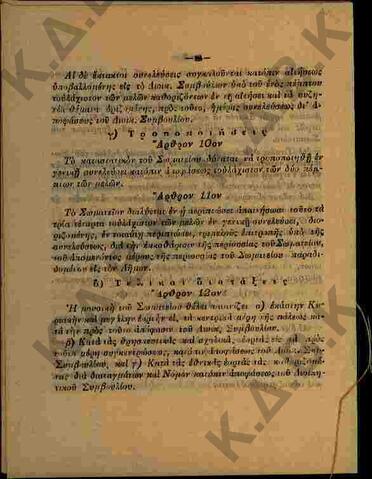 Αἱ δὲ ἔκτακτοι συνελεύσεις συγκαλοῦνται κατόπιν αἰτήσεως
ὑποβαλλομένης εἰς τὸ Διοικ. Συμβούλιον ὑπὸ τοῦ ἑνὸς πέμπτου
τοὐλάχιστον τῶν μελῶν καθοριζόντων ἐν τῇ αἰτήσει καὶ τὰ συζητη
τέα θέματα ὁριζομένης, πρὸς τοῦτο, ἡμέρας συνελεύσεως δι' ἀ-
ποφάσεως τοῦ Διοικ. Συμβουλίου.
γ) Τροποποιήσεις
Ἄρθρον 10ον
Τὸ καταστατικὸν τοῦ Σωματείου δύναται νὰ τροποποιηθῇ ἐν
γενικῇ συνελεύσει κατόπιν τοὐλάχιστον τῶν δύο πέμ-
πτων τῶν μελῶν.
Ἄρθρον 11ον
Τὸ Σωματεῖον διαλύεται ἐν ᾗ περιπτώσει ἀπαιτήσωσι τοῦτο τὰ
τρία τέταρτα τοὐλάχιστον τῶν μελῶν ἐν γενικῇ συνελεύσει, διο-
ριζομένης, ἐν τοιαύτῃ περιπτώσει, τριμελοῦς ἐπιτροπῆς ὑπὸ τῆς
συνελεύσεως, διὰ τὴν ἐκκαθάρισιν τῆς περιουσίας τοῦ Σωματείου,
τοῦ ἀπομένοντος μέρους τῆς περιουσίας τοῦ Σωματείου παραδι-
δομένου εἰς τὸν Δῆμον.
δ) Τελικαὶ διατάξεις
Ἄρθρον 12ον
Ἡ μουσικὴ τοῦ Σωματείου θέλει παιανίζει α) ἑκάστην Κυ-
ριακὴν καὶ μεγάλην ἑορτὴν εἰς τὰ κεντρικὰ μέρη τῆς πόλεως κα-
τὰ τὴν πρὸς τοῦτο ἀπόφασιν τοῦ Διοικ. Συμβουλίου.
β) Κατὰ τὰς θρησκευτικὰς καὶ σχολικὰς, ἑορτὰς εἰς τὰ πρὸς
τοῦτο μέρη συγκεντρώσεως, κατόπιν ἀποφάσεως τοῦ Διοικ.
Συμβουλίου, καὶ γ) Κατὰ τὰς ἐθνικὰς ἑορτὰς τὰς καθοριζομέ-
νας διὰ διαταγμάτων καὶ Νόμων κατόπιν ἀποφάσεως τοῦ Διοικη-
τικοῦ Συμβουλίου.